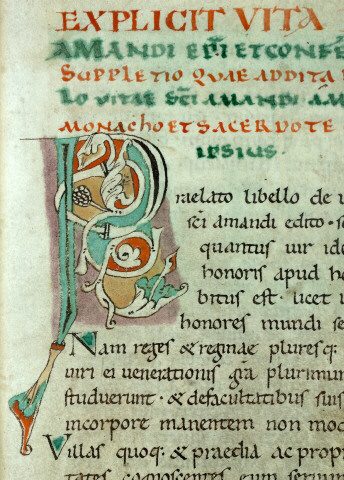 EXPLICIT VITA
AMANDI EPI ET CONFE
SUPPLETIO QUAE ADDITA
LO VITAE SCI AMANDI A M
MONACHO ET SACERDOTE
IPSIUS.
Praelato libello de
sci amandi edito.
quantus uir ide
honoris apud h
bitus est. licet
honores mundi se
Nam reges & reginae plures q:
uiri ei uenerationis gra plurimum
studuerunt. & de facultatibus suis
in corpore manentem non mod
Villas quoq: & praedia ac propri
tates cognoscentes eum